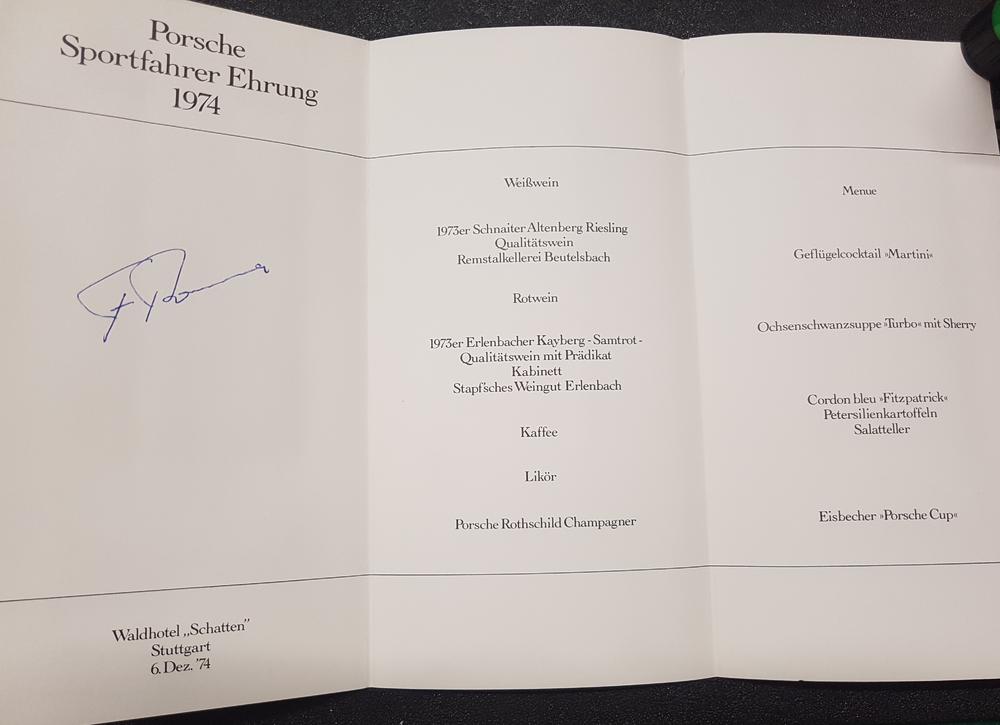 Porsche
Sportfahrer Ehrung
1974
Waldhotel „Schatten”
Stuttgart
6. Dez. '74
Weißwein
1973er Schnaiter Altenberg Riesling
Qualitätswein
Remstalkellerei Beutelsbach
Rotwein
1973er Erlenbacher Kayberg - Samtrot -
Qualitätswein mit Prädikat
Kabinett
Stapf'sches Weingut Erlenbach
Kaffee
Likör
Porsche Rothschild Champagner
Menue
Geflügelcocktail »Martini«
Ochsenschwanzsuppe »Turbo« mit Sherry
Cordon bleu »Fitzpatrick«
Petersilienkartoffeln
Salatteller
Eisbecher »Porsche Cup«